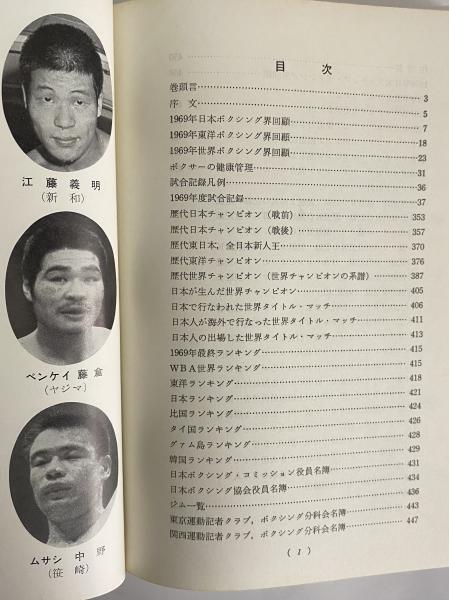 江藤義明
(新和)
ベンケイ藤倉
(ヤジマ)
ムサシ中野
(笹崎)
目次
巻頭言……3
序文……5
1969年日本ボクシング界回顧……7
1969年東洋ボクシング界回顧……18
1969年世界ボクシング界回顧……23
ボクサーの健康管理……31
試合記録凡例……36
1969年度試合記録……37
歴代日本チャンピオン(戦前)……353
歴代日本チャンピオン(戦後)……357
歴代東日本,全日本新人王……370
歴代東洋チャンピオン……376
歴代世界チャンピオン(世界チャンピオンの系譜)……387
日本が生んだ世界チャンピオン……405
日本で行なわれた世界タイトル・マッチ……406
日本人が海外で行なった世界タイトル・マッチ……411
日本人の出場した世界タイトル・マッチ……413
1969年最終ランキング……415
WBA世界ランキング……415
東洋ランキング……418
日本ランキング……421
比国ランキング……424
タイ国ランキング……426
グァム島ランキング……428
韓国ランキング……429
日本ボクシング・コミッション役員名簿……431
日本ボクシング協会役員名簿……434
ジム一覧……436
東京運動記者クラブ,ボクシング分科会名簿……443
関西運動記者クラブ,ボクシング分科会名簿……447
(1)